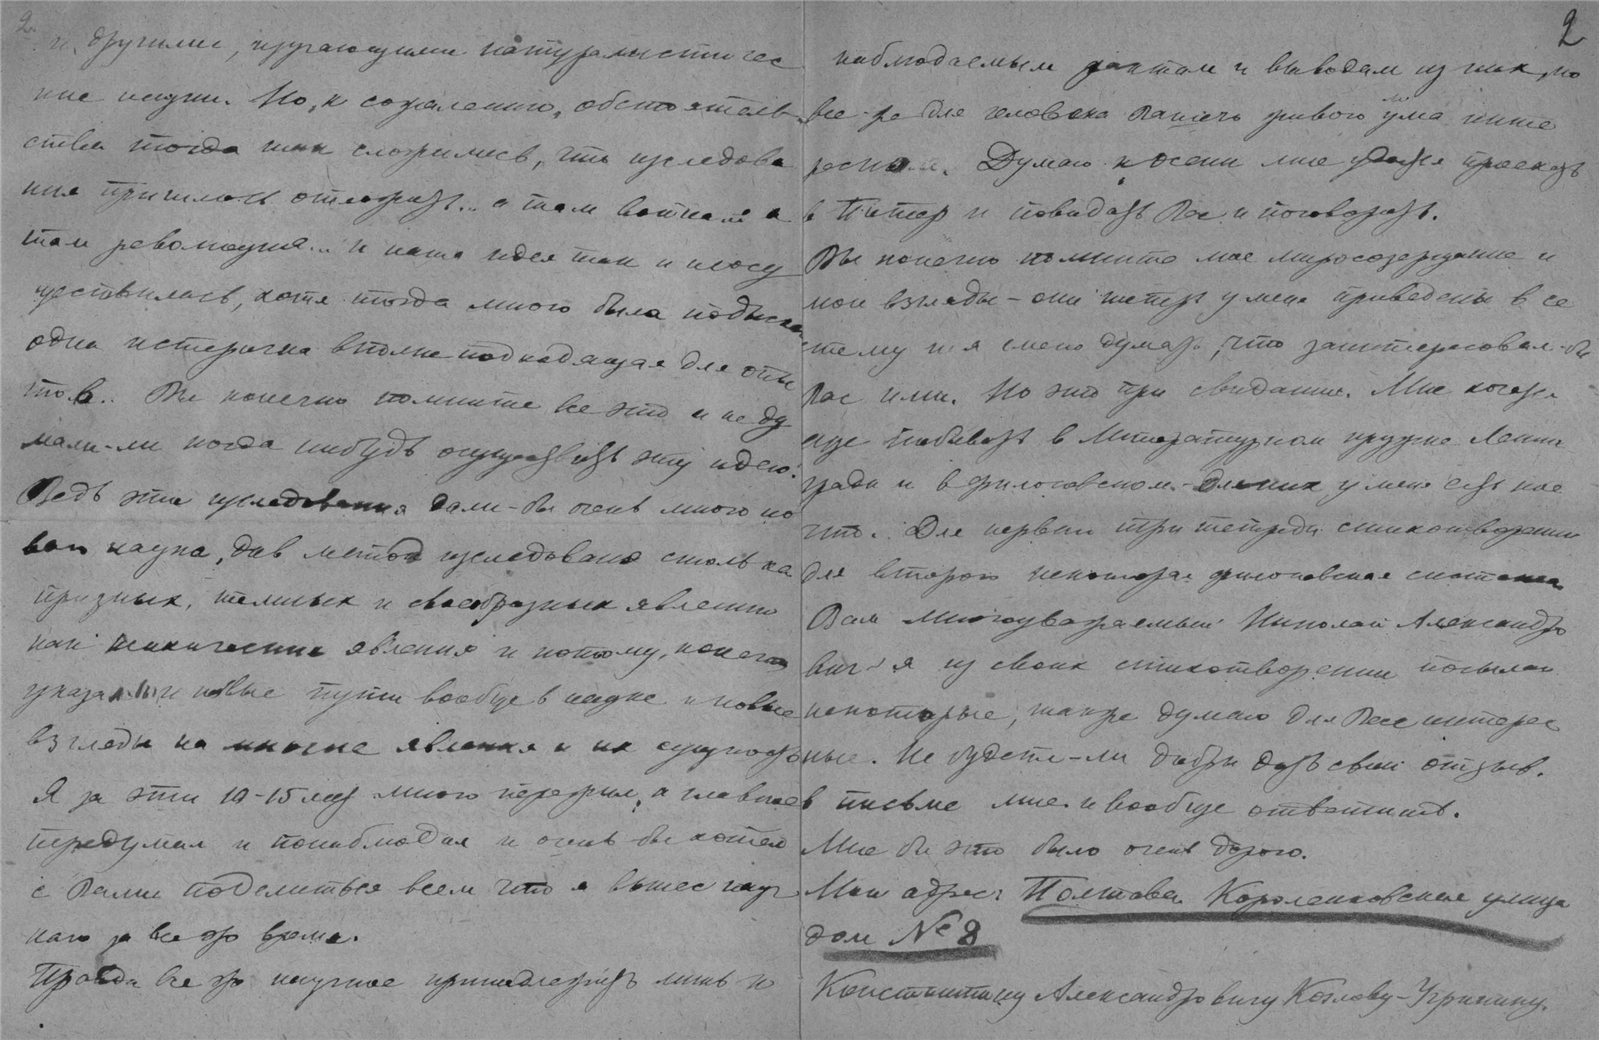 2
и другими, изучающими натуралистичес
кие науки. Но, к сожалению, обстоятель
ства тогда так сложились, что изследова
ния пришлось отложить... а там война.. а
там революция... и наша идея так и неосу
ществилась, хотя тогда мною была подыскана
одна истеричка вполне подходящая для опы
тов.. Вы конечно помните все это и не ду
мали-ли когда нибудь осуществить эту идею?
Ведь эти изследования дали-бы очень много но
вого науке, дав метод изследования столь ка
призных, темных и своеобразных явлений
как психические явления и потому, конечно
указали и новые пути вообще в науке и новые
взгляды на многие явления и их сущность
Я за эти 10-15 лет много пережил, а главное
передумал и понаблюдал и очень-бы хотел
с Вами поделиться всем что я вынес науч
наго за все это время.
Правда все это научное принадлежит лишь к
2
наблюдаемым фактам и выводам из них, но
все-же для человека Вашего живого ума инте
ресно. Думаю к осени мне удастся проехать
в Питер и повидать Вас и поговорить.
Вы конечно помните мое миросозерцание и
мои взгляды - они теперь у меня приведены в си
стему и я смею думать, что заинтересовал-бы
Вас ими. Но это при свидании. Мне хотелось
еще побывать в Литературном кружке Ленин
града и в философском - для них у меня есть кое
что. Для первых три тетради стихотворений
для второго некоторая философская система
Вам Многоуважаемый Николай Александро
вич я из своих стихотворений посылаю
некоторые, также думаю для Вас интерес
ные. Не будете-ли добры дать свой отзыв.
в письме мне и вообще ответить.
Мне бы это было очень дорого.
Мой адрес: Полтава. Короленковская улица
дом № 8
Константину Александровичу Козлову-Угринину.